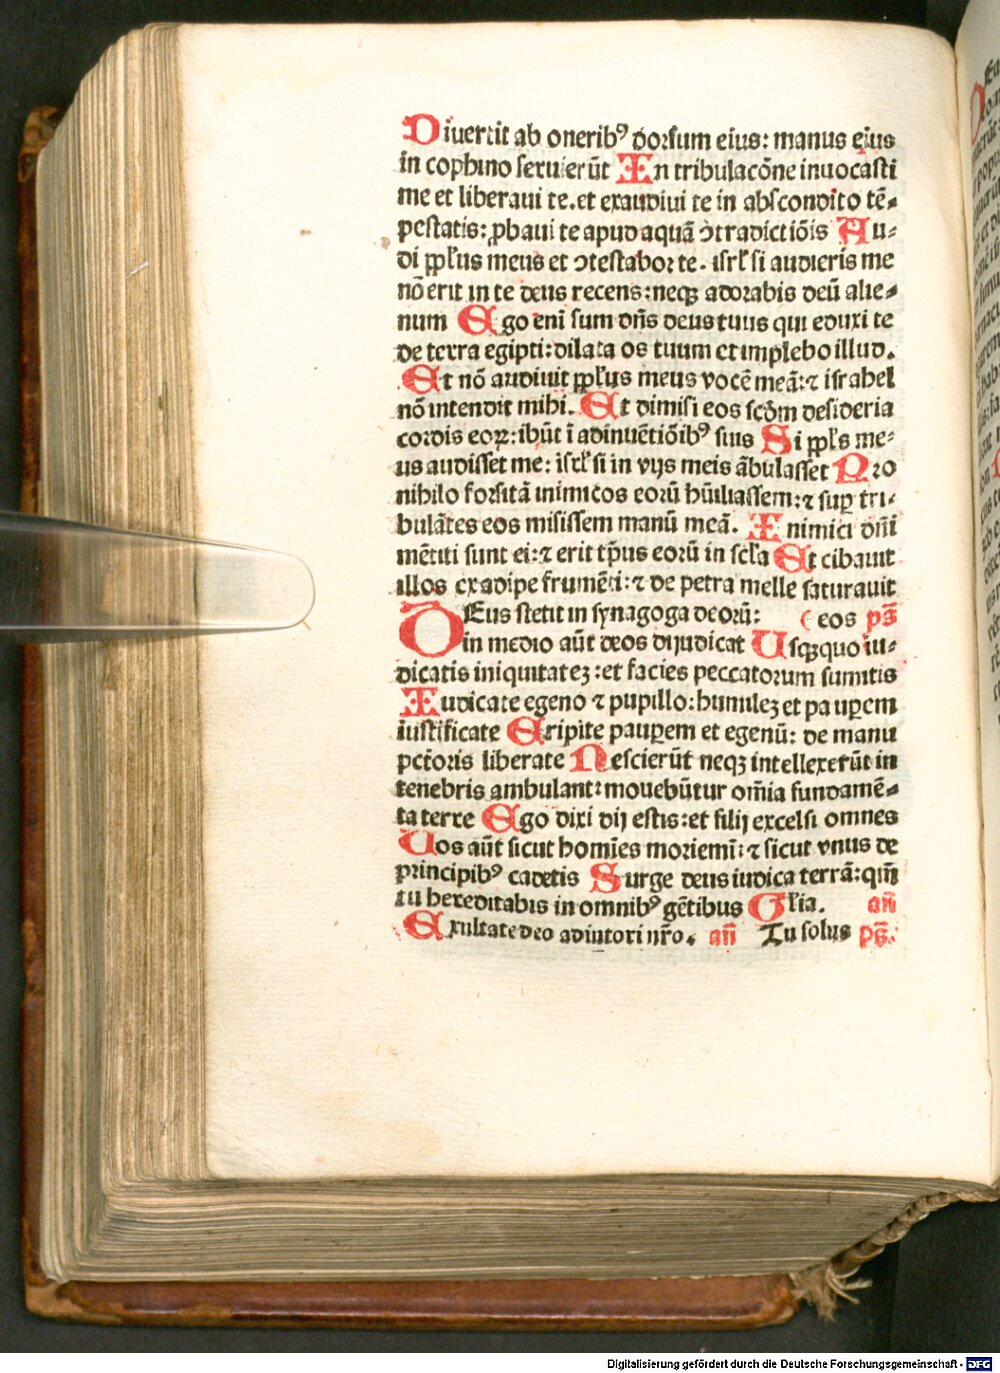 Diuertit ab oneribꝰ dorsum eius: manus eius
in cophino seruierūt In tribulacōne inuocasti
me et liberaui te. et exaudiui te in abscondito tē-
pestatis: ꝓbaui te apud aquā ↄtradictiōis Au-
di ppl̓us meus et ↄtestabor te. isrl̓ si audieris me
nō erit in te deus recens: neqꝫ adorabis deū alie-
num Ego eni̅ sum dn̄s deus tuus qui eduxi te
de terra egipti: dilata os tuum et implebo illud.
Et nō audiuit ppl̓us meus vocē meā: ⁊ israhel
nō intendit mihi. Et dimisi eos scd̄m desideria
cordis eoꝝ: ibūt ī adinuētiōibꝰ suis Si ppl̓s me-
us audisset me: isrl̓ si in vijs meis ābulasset Pro
nihilo forsitā inimicos eorū hūiliassem: ⁊ suꝑ tri-
bulātes eos misissem manū meā. Inimici dn̄i
mētiti sunt ei: ⁊ erit tp̄us eorū in scl̓a Et cibauit
illos exadipe frumēti: ⁊ de petra melle saturauit
DEus stetit in synagoga deorū: ( eos ps̄
in medio aūt deos dijudicat Usqꝫquo iu-
dicatis iniquitateꝫ: et facies peccatorum sumitis
Iudicate egeno ⁊ pupillo: humileꝫ et pauꝑem
iustificate Eripite pauꝑem et egenū: de manu
pctōris liberate Nescierūt neqꝫ intellexerūt in
tenebris ambulant: mouebūtur om̄ia fundamē-
ta terre Ego dixi dij estis: et filij excelsi omnes
Uos aūt sicut homi̅es moriemi̅: ⁊ sicut vnus de
principibꝰ cadetis Surge deus iudica terrā: qm̄
tu hereditabis in omnibꝰ gētibus Gl̓ia. an̄
Exultate deo adiutori nr̄o. an̄ Tu solus ps̄.
Digitalisierung gefördert durch die Deutsche Forschungsgemeinschaft - DFG